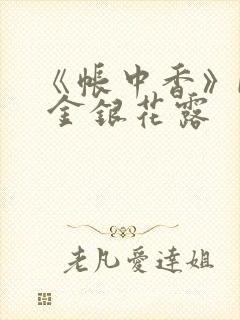 《帳中香》
金銀花露
老凡愛達姐